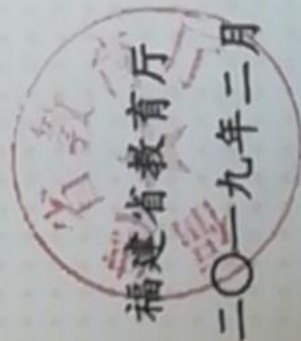 福建省教育厅
二〇一九年二月